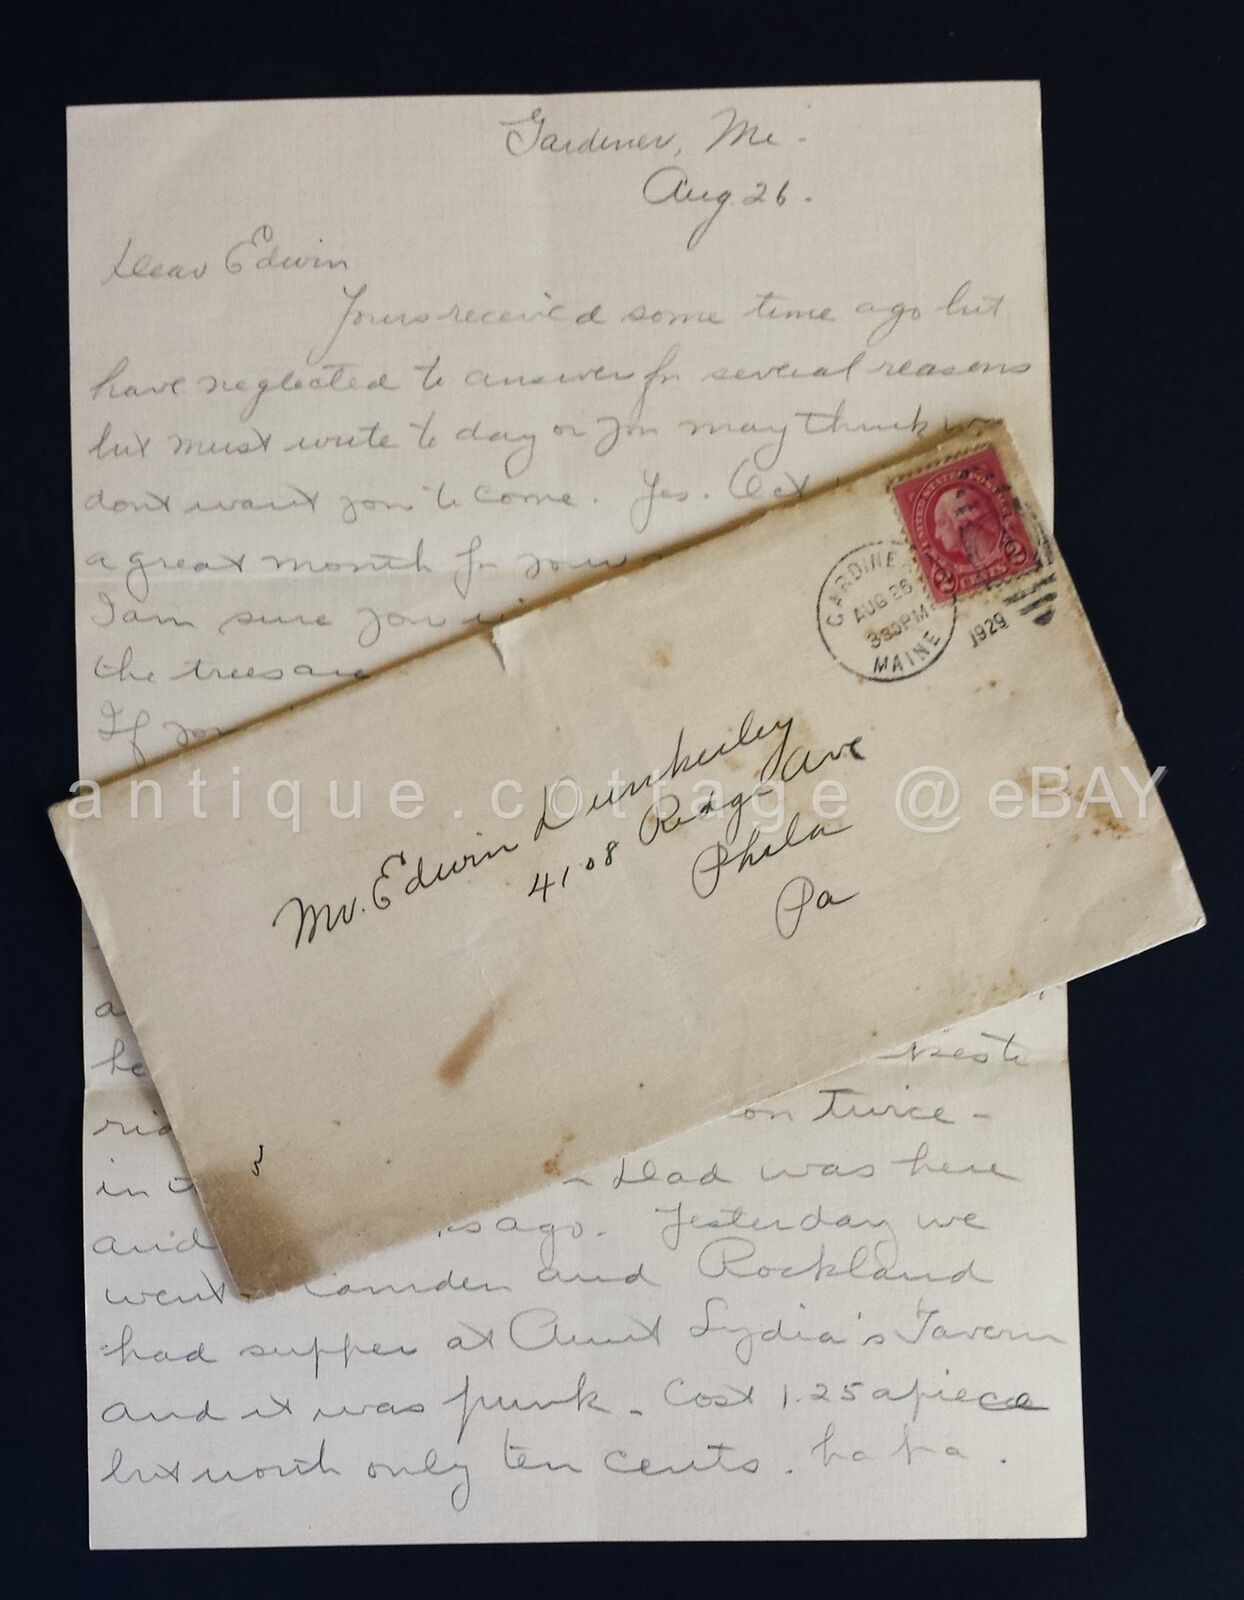 Gardiner, Me.
Aug 26.
Dear Edwin
Yours received some time ago but
have neglected to answer for several reasons
but must write to day or you may think we
dont want you to come. Yes. Oct
a great month for your
I am sure you
the trees are
If you
UNITED STATES POSTAGE
2 CENTS 2
GARDINER
AUG 26
330PM
MAINE
1929
Mr. Edwin Dunkerley
4108 Ridge Ave
Phila
Pa
antique.cottage @ eBAY
a
he
on twice -
in
- Dad was here
and ago. Yesterday we
went Camden and Rockland
had supper at Aunt Lydia's Tavern
and it was punk - Cost 1.25 apiece
but worth only ten cents. ha ha.